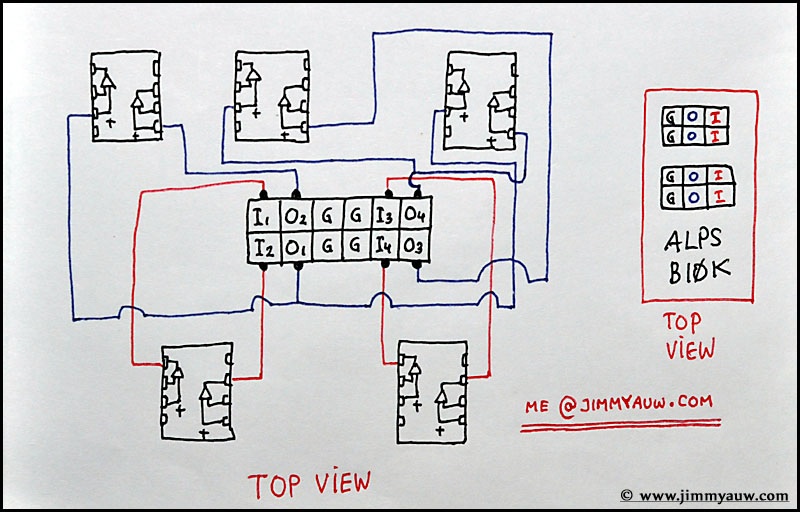 + +
+ +
+ +
I₁ O₂ G G I₃ O₄
I₂ O₁ G G I₄ O₃
+ +
+ +
TOP VIEW
G O I
G O I
G O I
G O I
ALPS
B10K
TOP
VIEW
ME @JIMMYAUW.COM
© www.jimmyauw.com